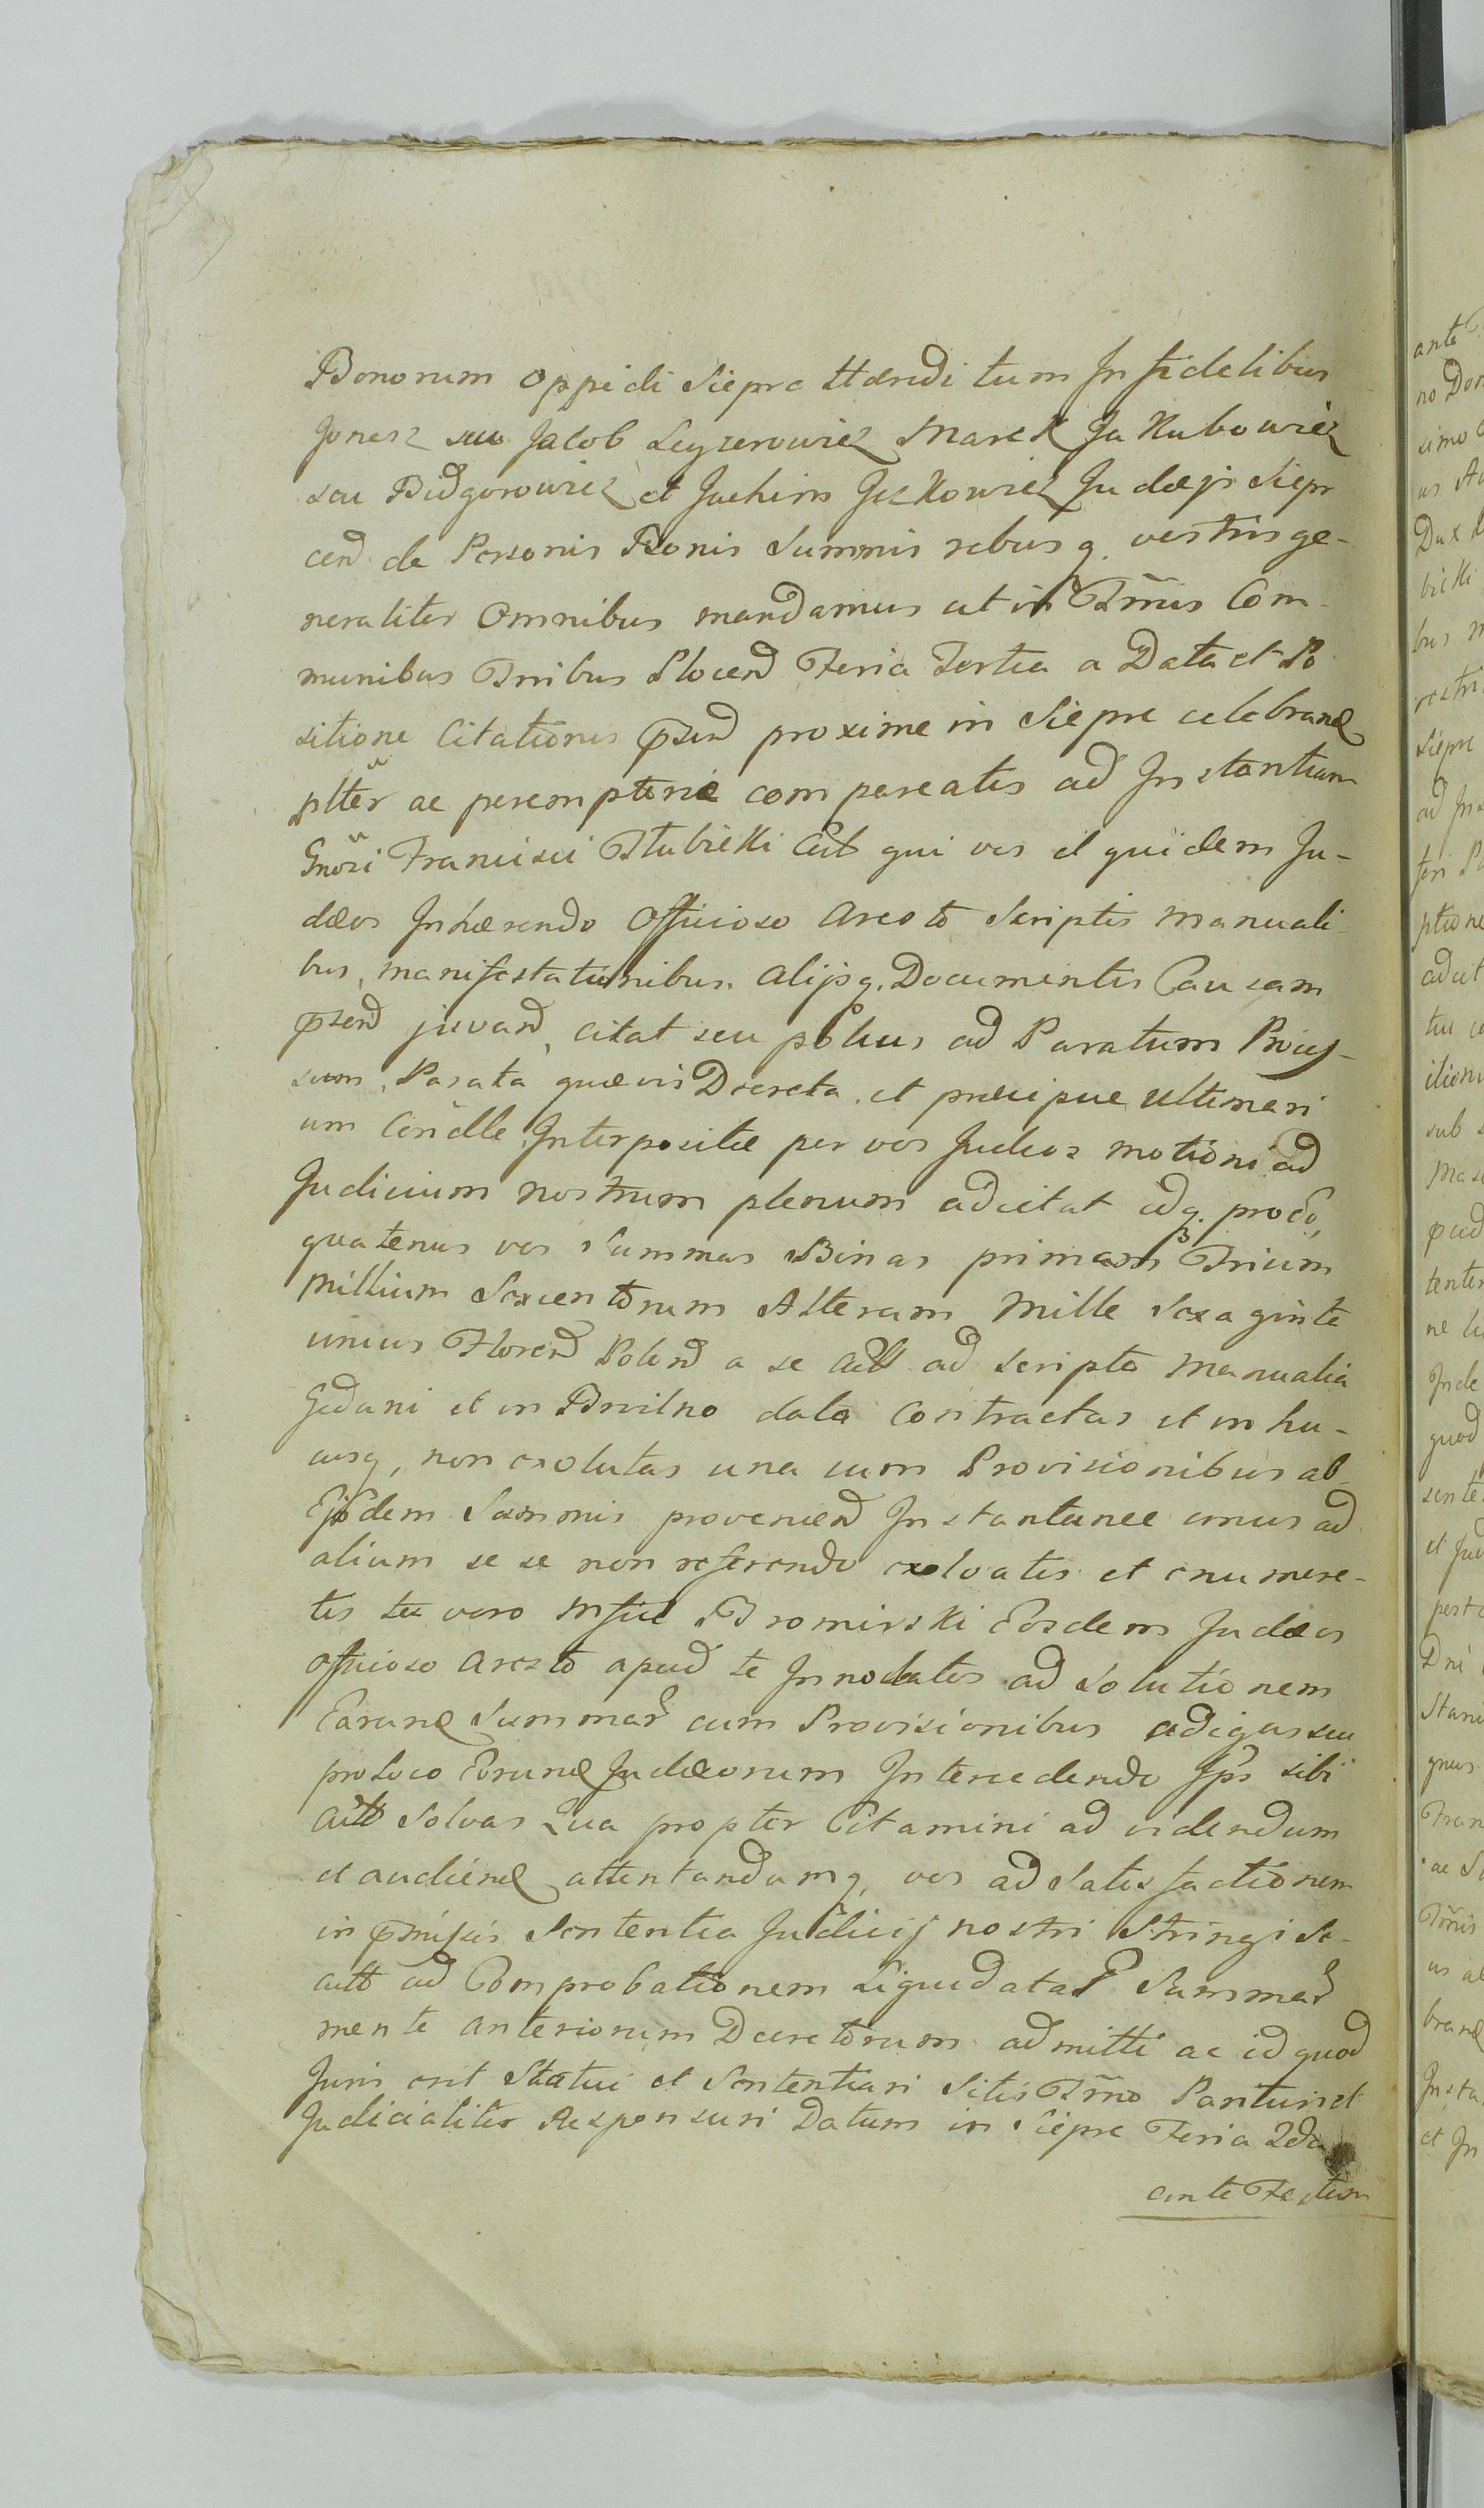 Bonorum Oppidi Siepre Hæredi tum Infidelibus
Jonesz seu Jacob Leyzerowicz Marek Jakubowicz
seu Bidgorowicz et Jochim Jczkowicz Judæjs Siepr
cen̄ de Personis Bonis Summis rebusq. vestris ge-
neraliter Omnibus mandamus ut in Tr̃mis Com-
munibus Trribus Plocen̄ Feria Tertia a Data et Po
sitione Citationis p̃sen̄ proxime in Siepre celebran̄
pltẽr ac peremptorie compareatis ad Instantiam
Gnõsi Francisci Hubicki Act̃ qui vos et quidem Ju-
dæos Inhærendo Officioso Aresto Scriptis Manuali-
bus, manifestationibus. Alijsq. Documentis Causam
p̃sen̄ juvan̄, citat seu potius ad Paratum Proces-
sum, Parata quævis Decreta, et præcipue Ultimari
um Condẽlle Interpositæ per vos Judæos motioni ad
Judicium nostrum plenum adcitat idq. proeo,
quatenus vos Summas Binas primam Trium
Millium Sexcentorum Alteram Mille Sexaginta
unius Floren̄ Polon̄ a se Act̃ ad Scripta Manualia
Gedani et in Brvilno data Contractas et in hu-
cusq, non exolutas una cum Provisionibus ab
Ejsdem Summis provenien̄ Instantanee unus ad
alium se se non referendo exolvatis et enumere-
tis tu vero Mf̃ice Bromirski Eosdem Judæos
Officioso Aresto apud te Innodatos ad Solutionem
Earund̄ Summar̄ cum Provisionibus adigas seu
pro Loco Eorund̄ Judæorum Intercedendo Ips̃ sibi
Act̃ Solvas Qua propter Citamini ad videndum
et audien̄d attentandumq, vos ad Satisfactionem
in p̃missis Sententia Judicij nostri Stringi Se
actt̃ ad Comprobationem Liquidatar̄ Summar̄
mente anteriorum Decretorum admitti ac id quod
Juris erit Statui et Sententiari Sitis Tr̃mo Parituri et
Judicialiter Responsuri Datum in Siepre Feria 2da
ante Festum